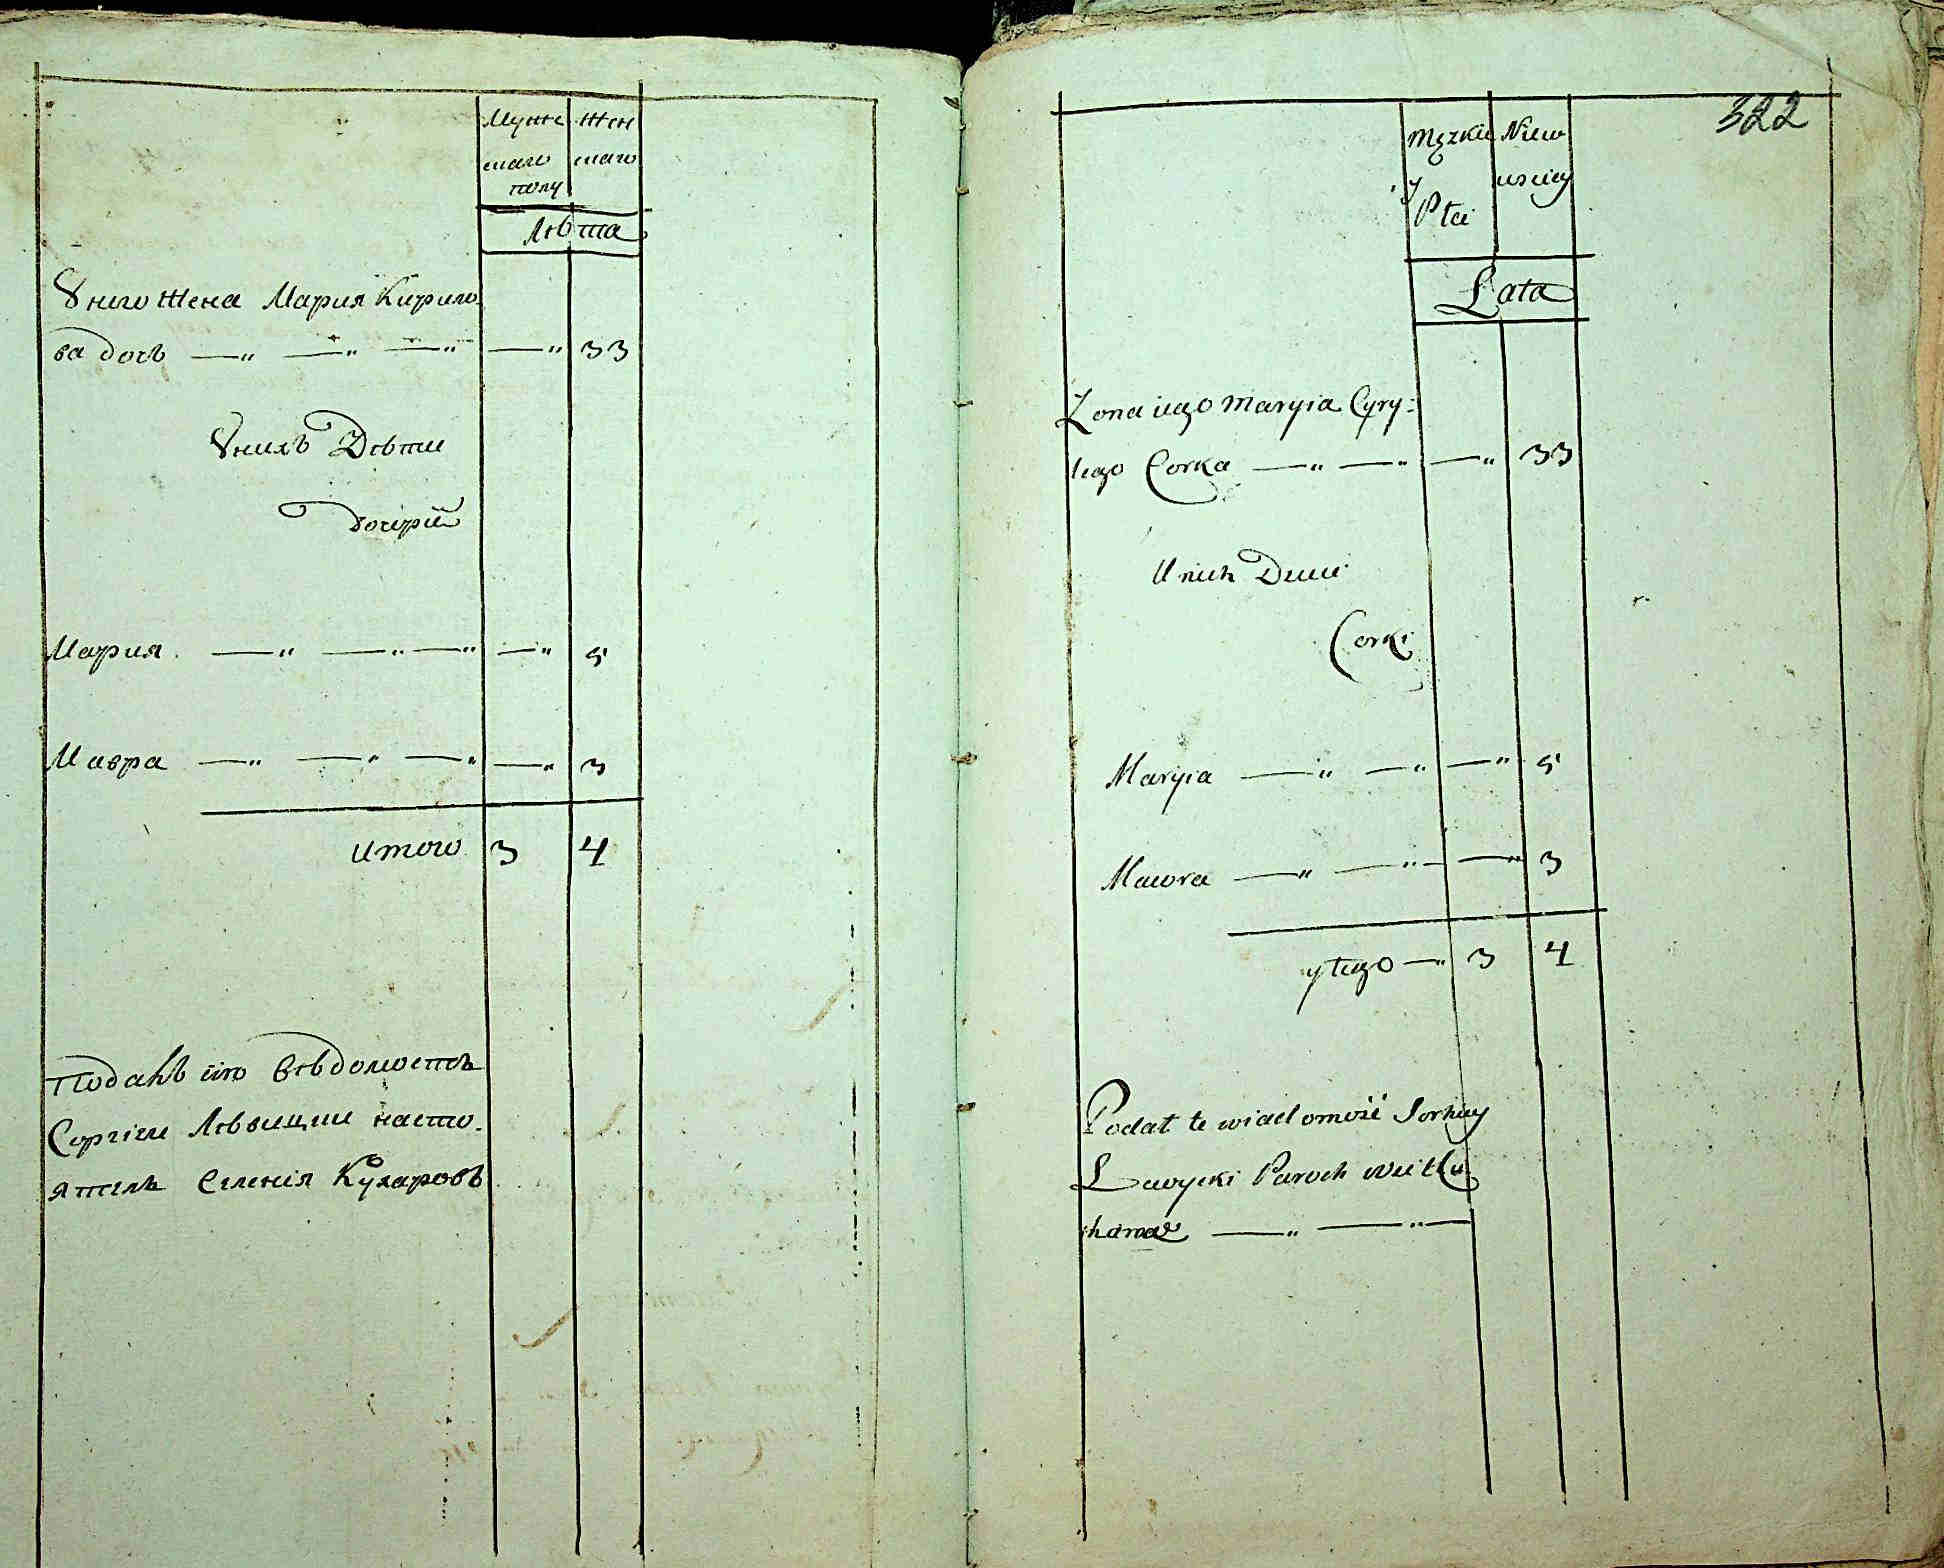 Муже Жен
скаго скаго
полу
Лѣта
У него Жена Мария Кирило
ва дочь — " — " — " — " 33
У нихъ Дѣти
дочерїи
Мария — " — " — " — " 5
Мавра — " — " — " — " 3
итого 3 4
Подалъ сїю вѣдомость
Сергїи Лѣвицки насто
ятель Селения Кухаровъ
322
Męzkiey Niew
usciey
Płci
Lata
Zona iego Maryia Cyry:
lego Corka — " — " — " 33
U nich Dzieci
Corki
Maryia — " — " — " 5
Mawra — " — " — " 3
ytego — " 3 4
Podał te wiadomość Serhiy
Lewycki Paroch wsi Ku
charow — " — " —